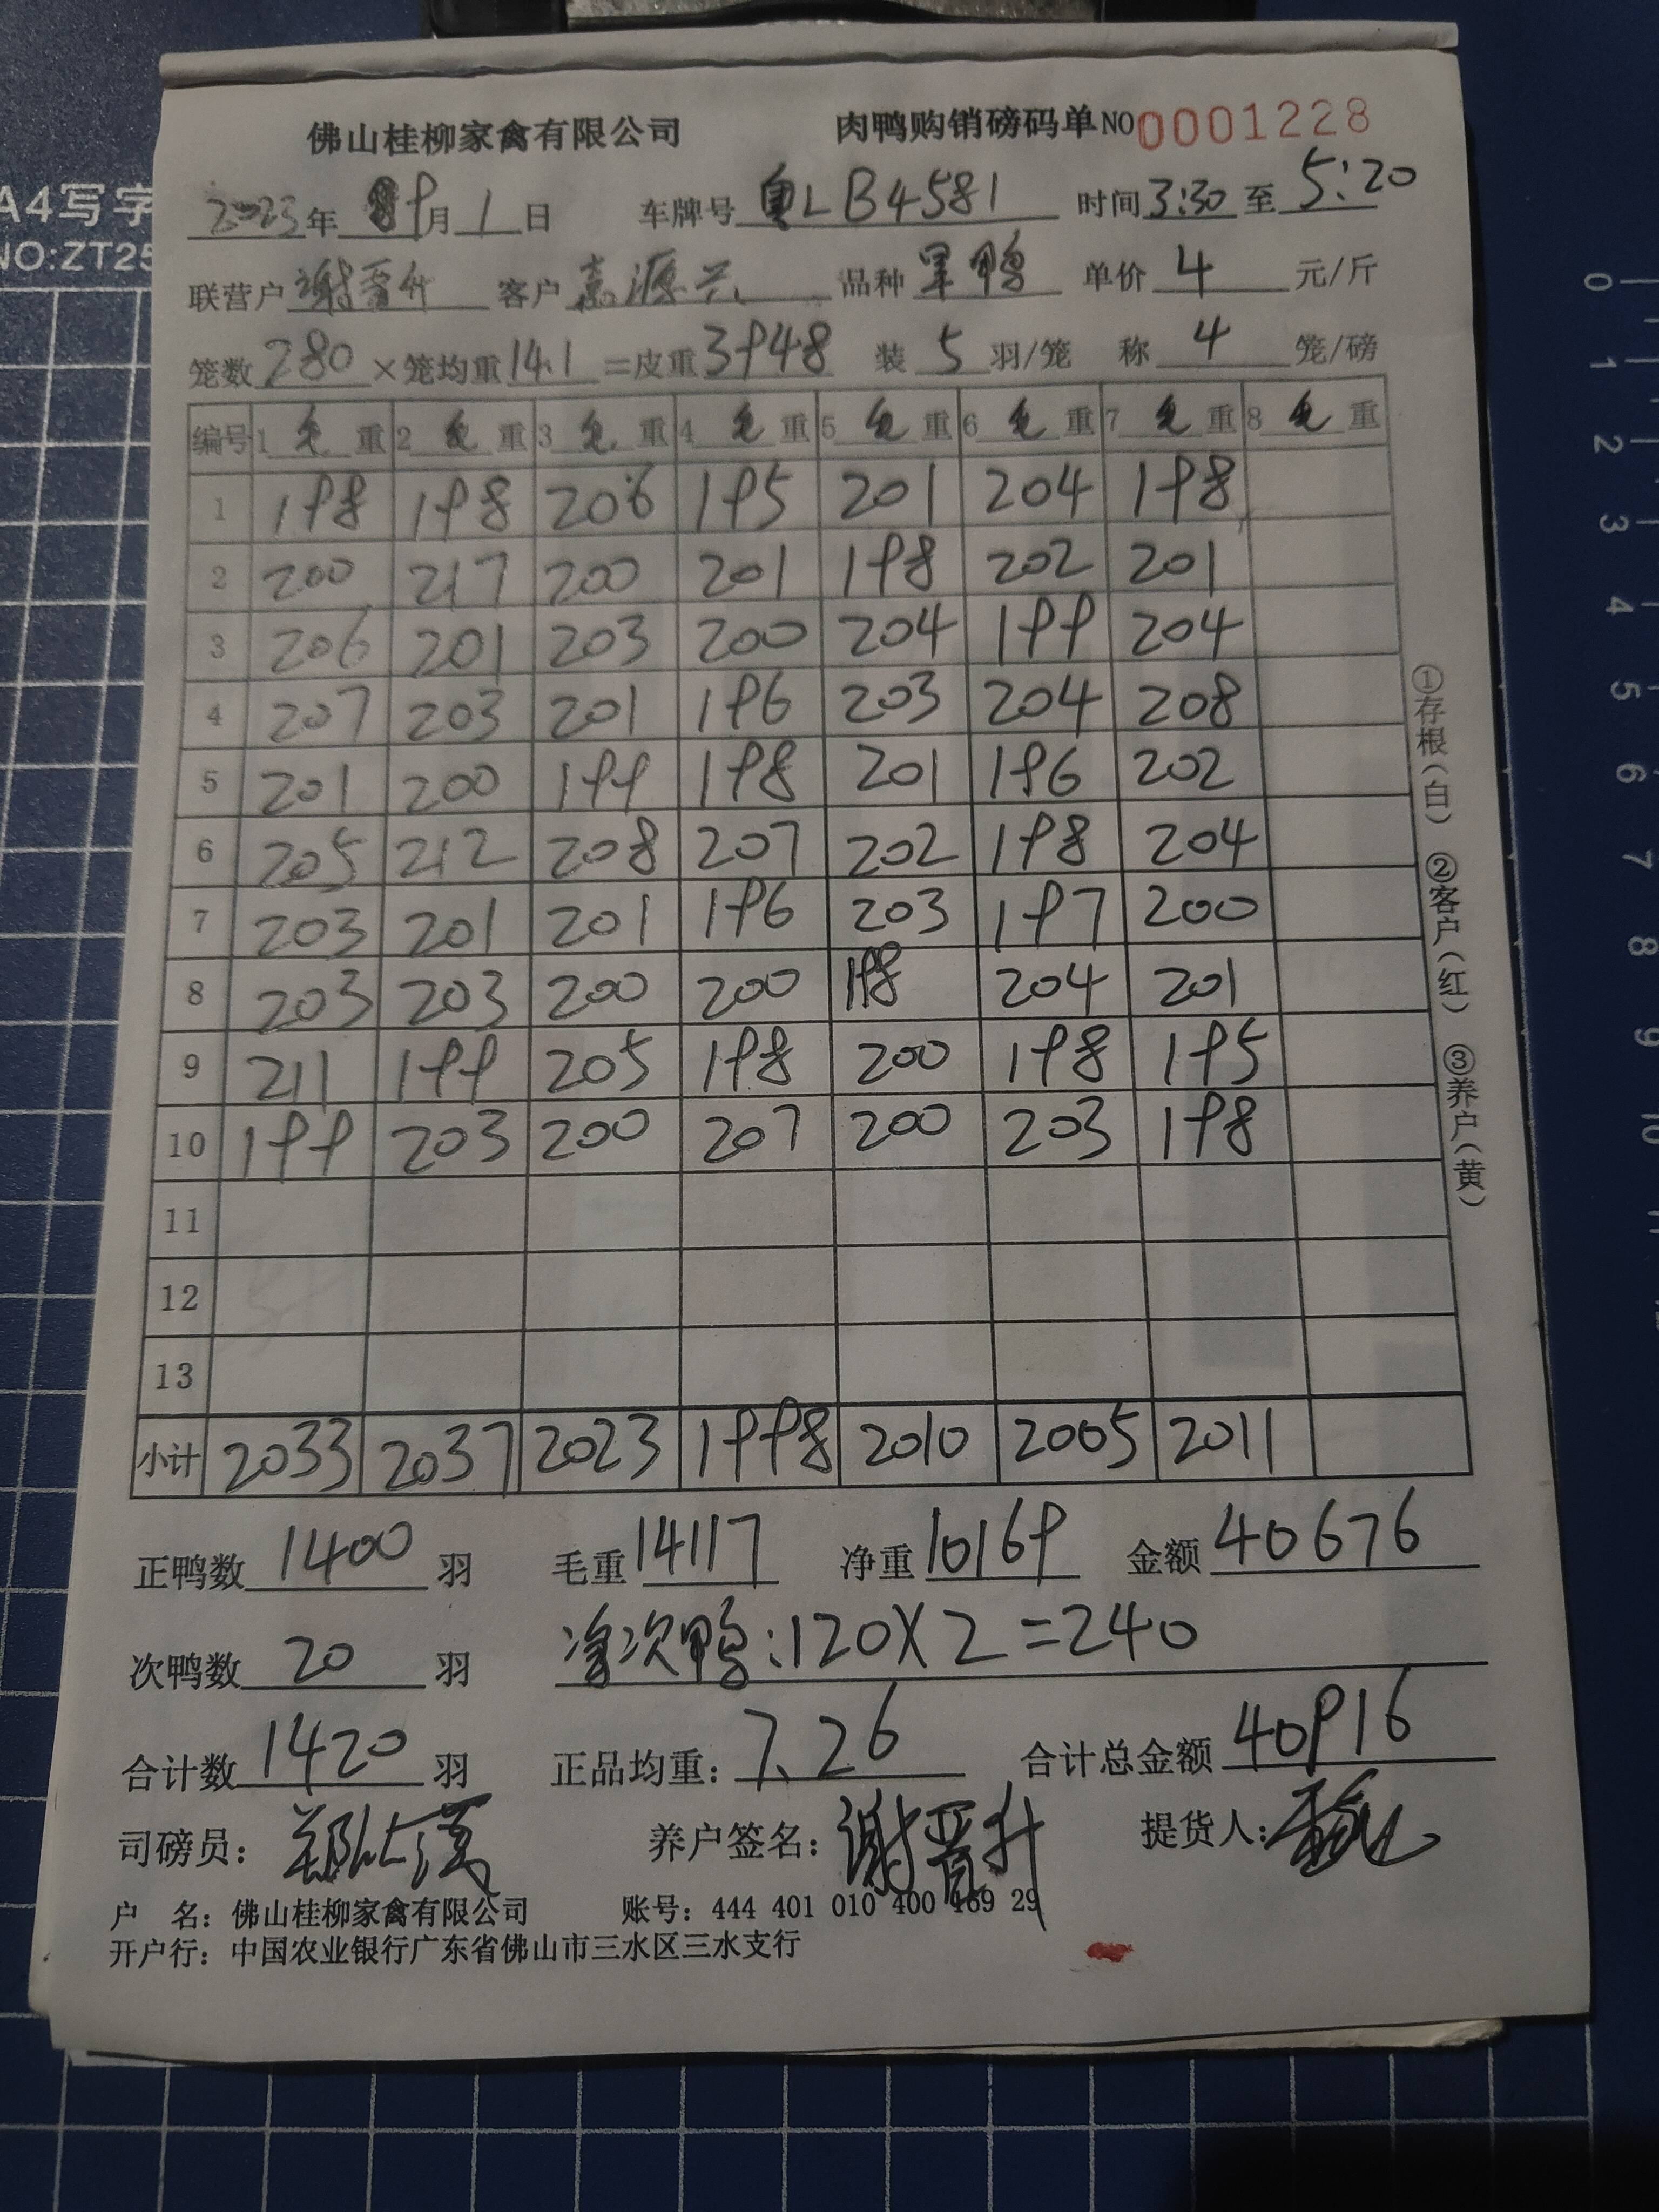 佛山桂柳家禽有限公司 肉鸭购销磅码单 NO 0001228
2023年 9月 1日 车牌号 粤LB4581 时间 3:30 至 5:20
联营户 谢晋升 客户 嘉源兴 品种 鸭 单价 4 元/斤
笼数 280 ×笼均重 14.1 =皮重 3948 装 5 羽/笼 称 4 笼/磅
编号 1 毛 重 2 毛 重 3 毛 重 4 毛 重 5 毛 重 6 毛 重 7 毛 重 8 毛 重
1 198 198 206 195 201 204 198
2 200 217 200 201 198 202 201
3 206 201 203 200 204 199 204
4 207 203 201 196 203 204 208
5 201 200 199 198 201 196 202
6 205 212 208 207 202 198 204
7 203 201 201 196 203 197 200
8 203 203 200 200 198 204 201
9 211 199 205 198 200 198 195
10 199 203 200 207 200 203 198
11
12
13
小计 2033 2037 2023 1998 2010 2005 2011
正鸭数 1400 羽 毛重 14117 净重 10169 金额 40676
次鸭数 20 羽 净次鸭:120X2=240
合计数 1420 羽 正品均重: 7.26 合计总金额 40916
司磅员: 养户签名: 谢晋升 提货人:
户 名: 佛山桂柳家禽有限公司 账号: 444 401 010 400 469 29
开户行: 中国农业银行广东省佛山市三水区三水支行
①存根(白) ②客户(红) ③养户(黄)
A4写字
NO:ZT25
0
1
2
3
4
5
6
7
8
9
10